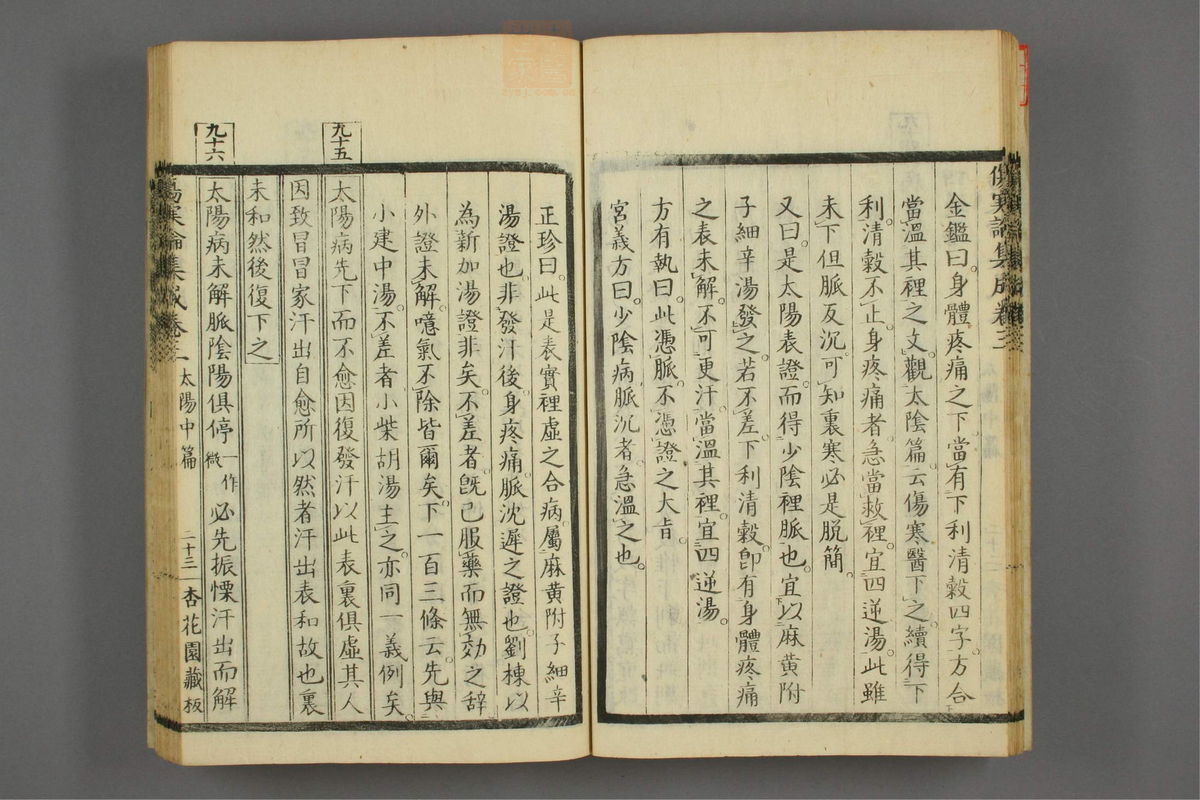 傷寒論集成卷三
金鑑曰身體疼痛之下當有下利清穀四字方合
當溫其裡之文觀太陰篇云傷寒醫下之續得下
利清穀不止身疼痛者急當救裡宜四逆湯此雖
未下但脈反沉可知裏寒必是脱簡
又曰是太陽表證而得少陰裡脈也宜以麻黄附
子細辛湯發之若不差下利清穀卽有身體疼痛
之表未解不可更汗當溫其裡宜四逆湯
方有執曰此憑脈不憑證之大㫖
宮義方曰少陰病脈沉者急溫之也
正珍曰此是表實裡虛之合病屬麻黄附子細辛
湯證也非發汗後身疼痛脈沈遲之證也劉棟以
為新加湯證非矣不差者旣已服藥而無効之辞
外證未解噫氣不除皆爾矣下一百三條云先與
小建中湯不差者小柴胡湯主之亦同一義例矣
九十五
太陽病先下而不愈因復發汗以此表裏俱虛其人
因致冒冒家汗出自愈所以然者汗出表和故也裏
未和然後復下之
九十六
太陽病未解脈陰陽俱停一作微必先振慄汗出而解
傷寒論集成卷三 太陽中篇 二十三 杏花園藏板